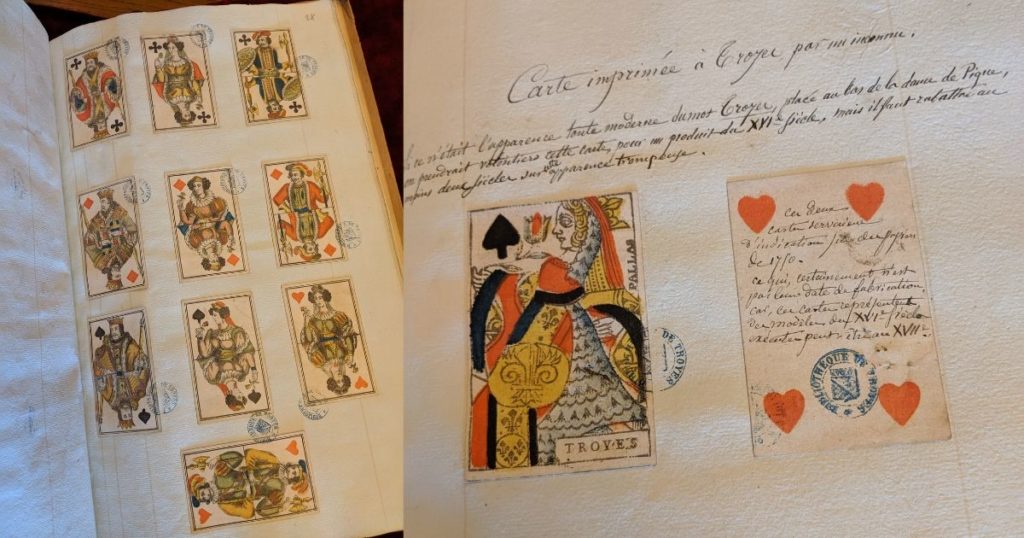 28
Carte imprimée à Troyes par un inconnu.
ce n'était l'apparence toute moderne du mot Troyes, placé au bas de la dame de Pique,
on prendrait volontiers cette carte, pour un produit du XVIe siècle, mais il faut rabattre au
moins deux siècles sur cette apparence trompeuse.
PALLAS
TROYES
ces deux
cartes servaient
d'indication
de 1750.
ce qui, certainement n'est
pas leur date de fabrication
car, ces cartes représentent
des modèles du XVIe siècle
exécutés peut-être au XVIIe
DE TROYES
BIBLIOTHÈQUE DE TROYES